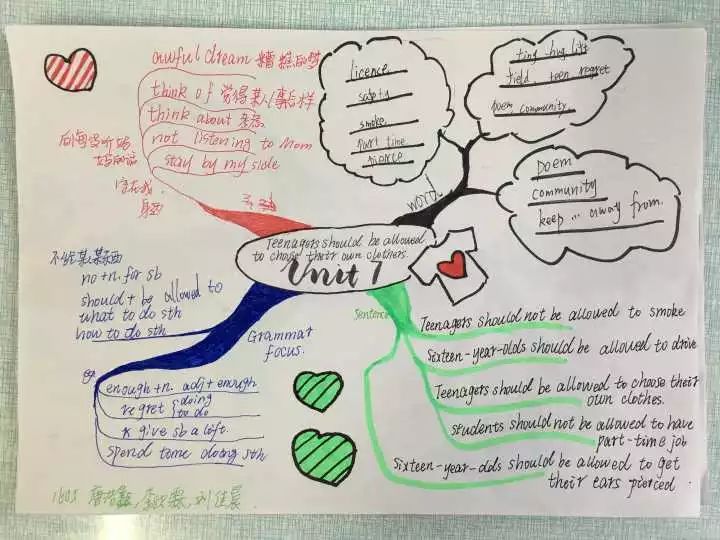 awful dream 糟糕的梦
think of 觉得某人/事怎样
think about 考虑
not listening to Mom
stay by my side
守在我
身边
licence
safety
smoke
part time
pierce
tiny hug lift
field teen regret
poem community
Poem
community
keep ... away from
word
Teenagers should be allowed
to choose their own clothes.
Unit 7
不给某人某东西
no+n. for sb
should + be allowed to
what to do sth
how to do sth
Grammar
focus.
enough+n. adj+enough
regret doing
to do
give sb a lift.
spend time doing sth
Sentence
Teenagers should not be allowed to smoke
Sixteen-year-olds should be allowed to drive
Teenagers should be allowed to choose their
own clothes.
students should not be allowed to have
part-time job
Sixteen-year-olds should be allowed to get
their ears pierced